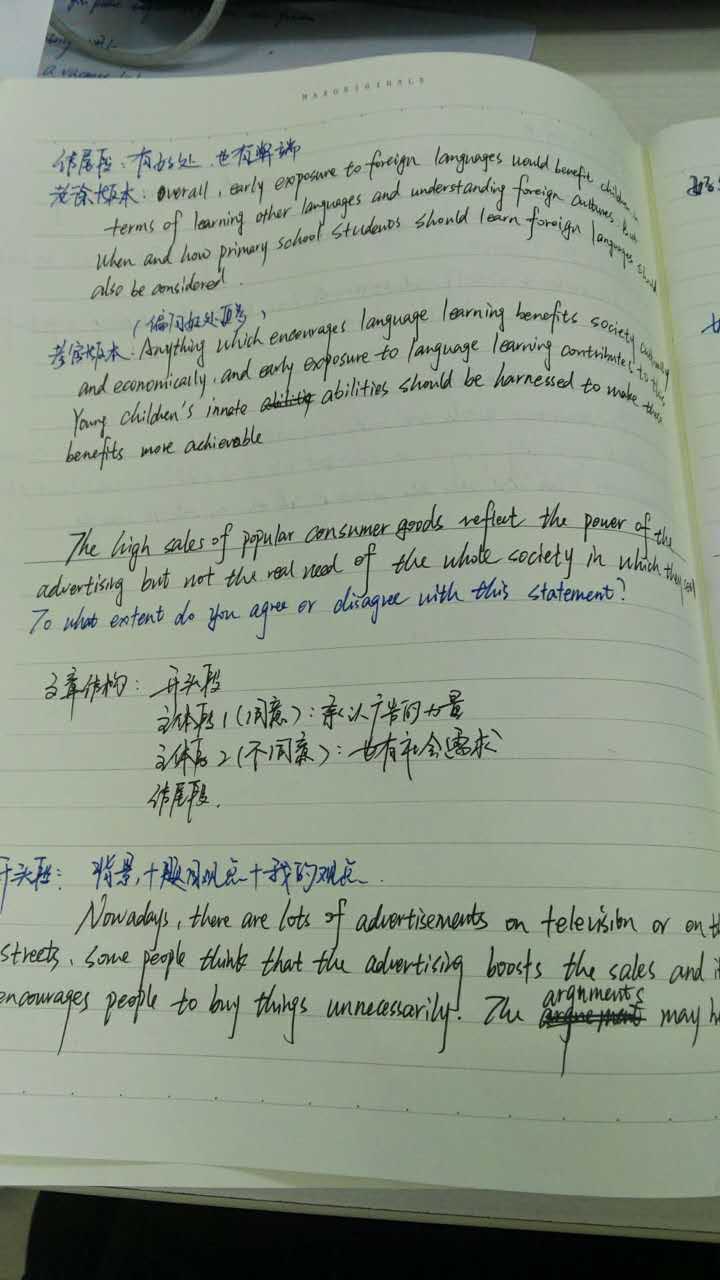 MAXORIGINALS
结尾段：有好处，也有弊端
老徐版本：overall, early exposure to foreign languages would benefit children in
terms of learning other languages and understanding foreign cultures. But
when and how primary school students should learn foreign languages should
also be considered.
(偏向好处更多)
考官版本：Anything which encourages language learning benefits society culturally
and economically, and early exposure to language learning contributes to this.
Young children's innate abilities should be harnessed to make these
benefits more achievable
The high sales of popular consumer goods reflect the power of the
advertising but not the real need of the whole society in which they
To what extent do you agree or disagree with this statement?
文章结构：开头段
主体段1(同意)：承认广告的力量
主体段2(不同意)：也有社会需求
结尾段.
开头段：背景,+题目观点+我的观点.
Nowadays, there are lots of advertisements on television or on th
streets, some people think that the advertising boosts the sales and i
encourages people to buy things unnecessarily. The arguments may h